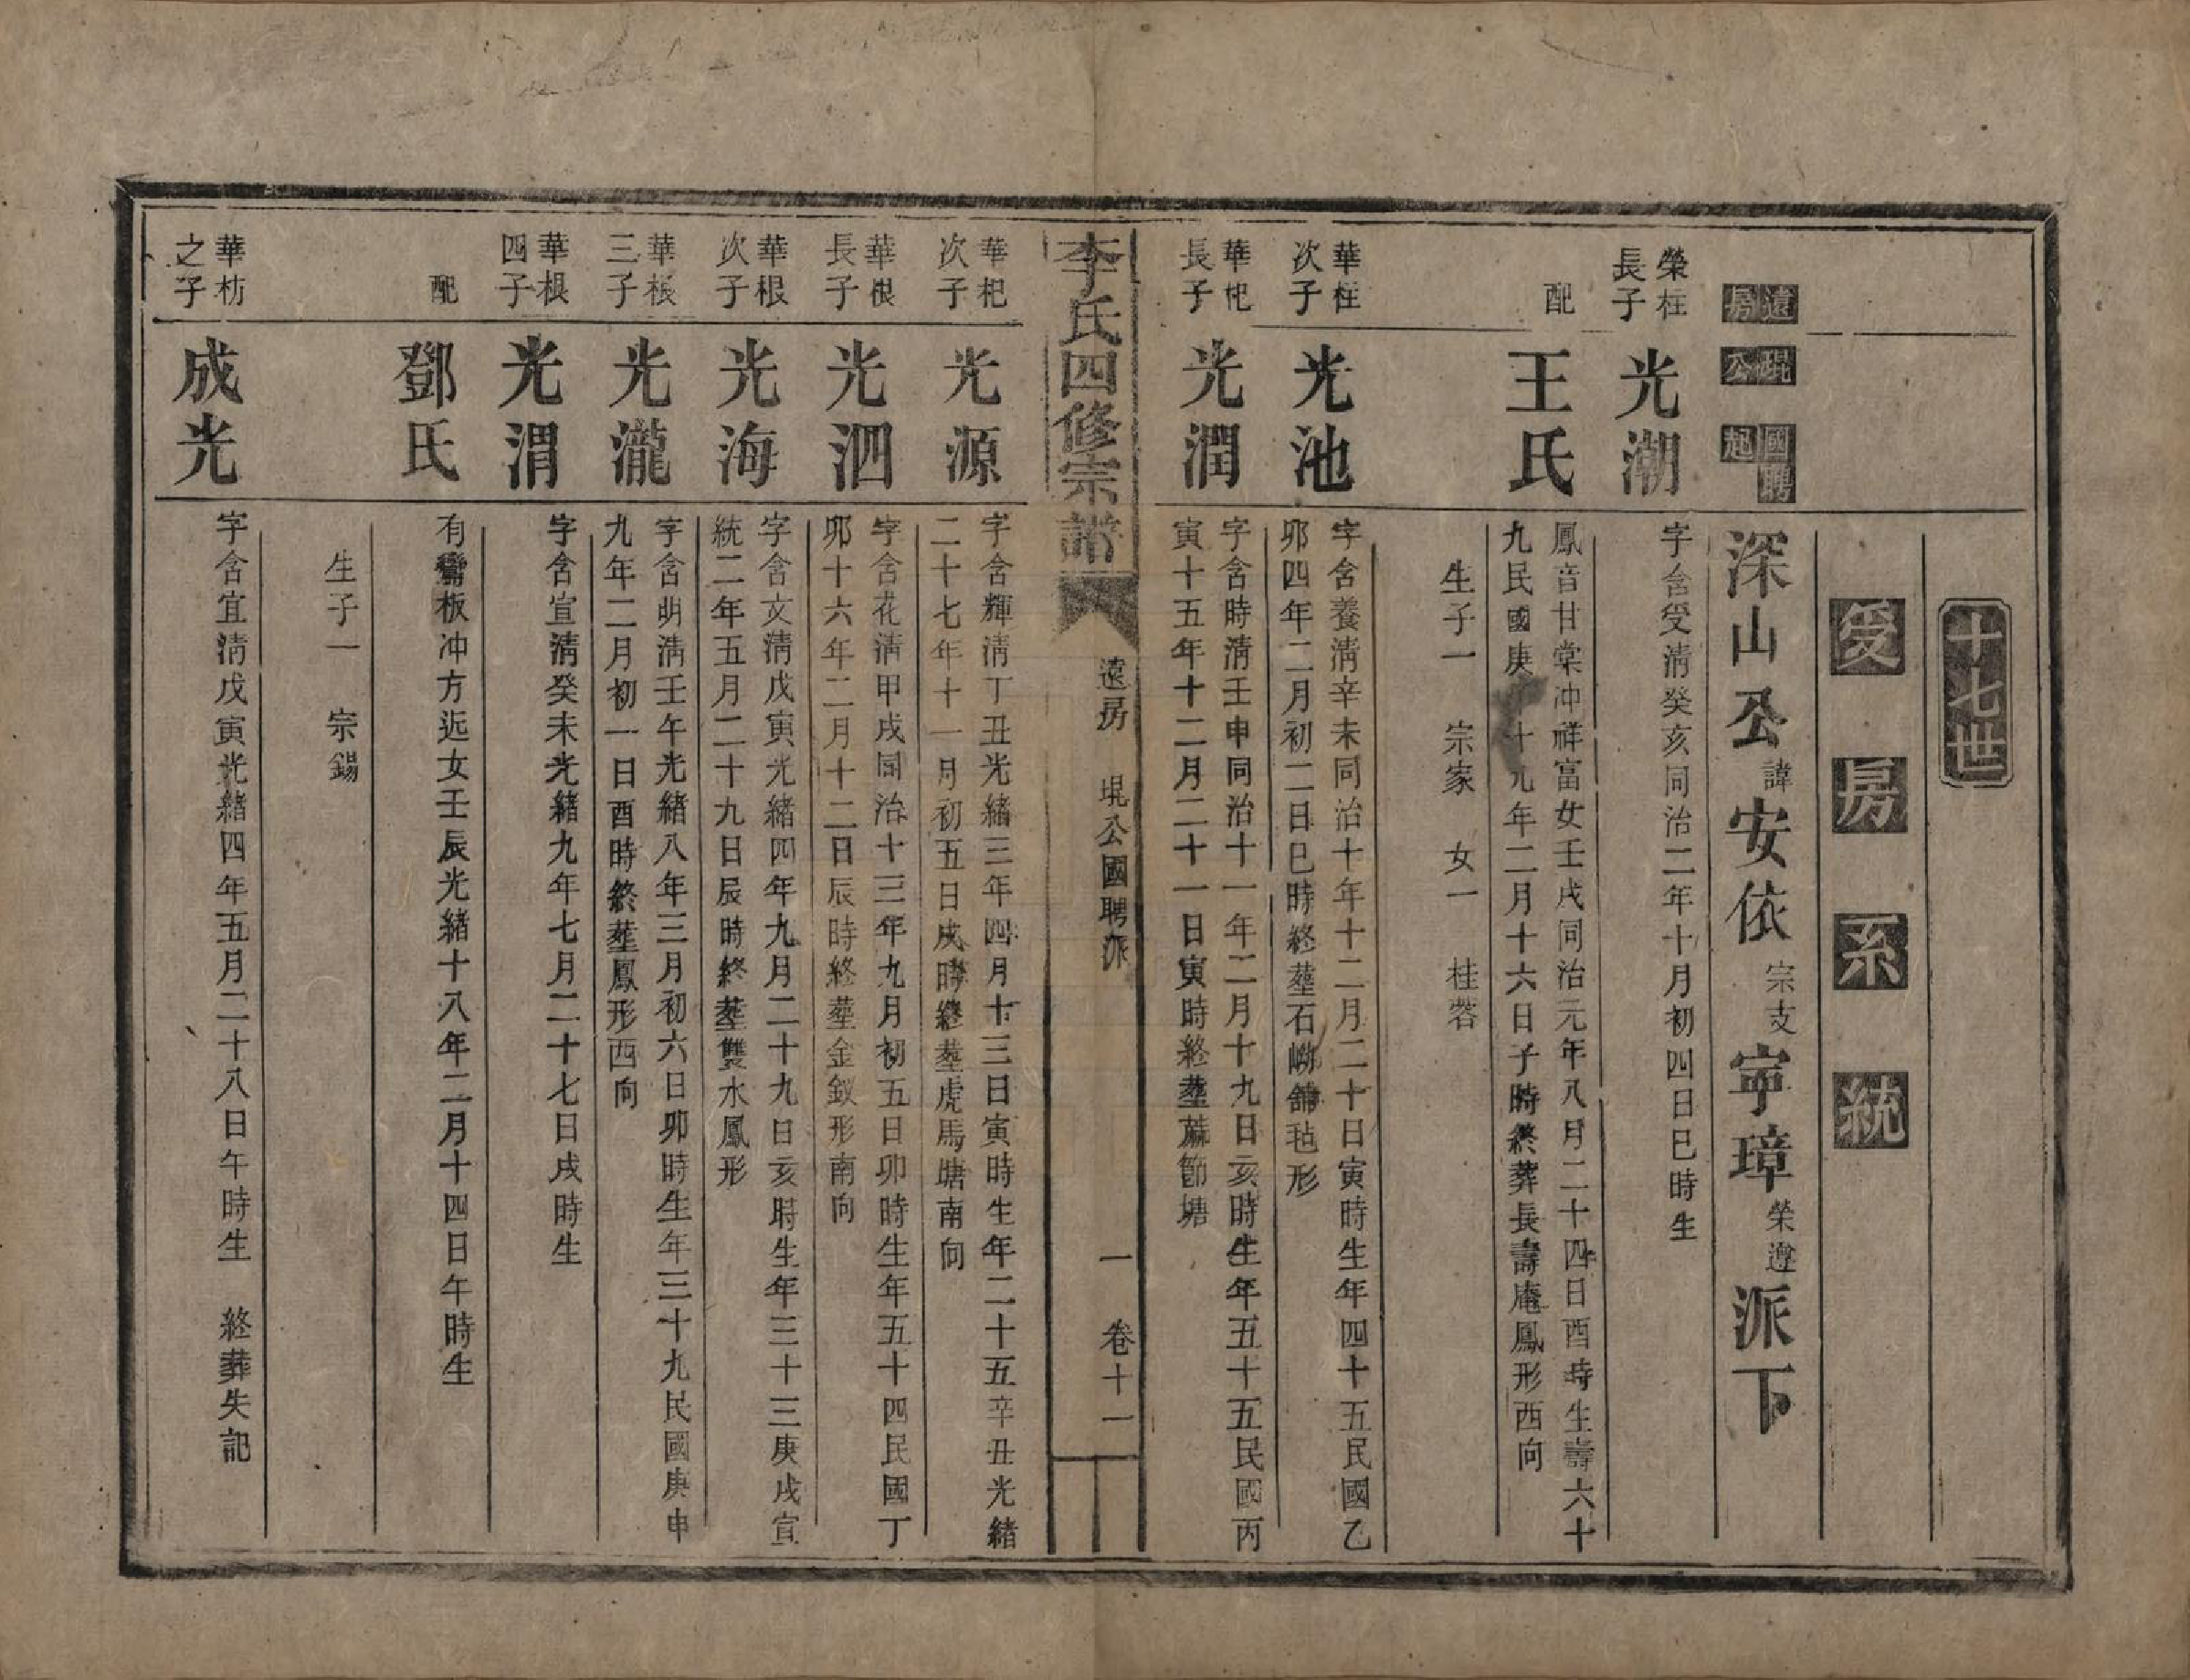 十七世
受房系統
遠房
琨公
國聘起
深山公諱安依宗支寕璋榮遵派下
榮枉長子
光潮
字含受淸癸亥同治二年十月初四日巳時生
配
王氏
鳳音甘棠冲祥富女壬戌同治元年八月二十四日酉時生壽六十
九民國庚 十九年二月十六日子時終葬長壽庵鳳形西向
生子一 宗家 女一 桂蓉
華枉次子
光池
字含養淸辛未同治十年十二月二十日寅時生年四十五民國乙
卯四年二月初二日巳時終塟石嶗舗毡形
華杞長子
光潤
字含時淸壬申同治十一年二月十九日亥時生年五十五民國丙
寅十五年十二月二十一日寅時終塟蔴節塘
李氏四修宗譜
遠房 琨公國聘派
一 卷十一
華杞次子
光源
字含輝淸丁丑光緒三年四月十三日寅時生年二十五辛丑光緒
二十七年十一月初五日戌時終塟虎馬塘南向
華根長子
光泗
字含花淸甲戌同治十三年九月初五日卯時生年五十四民國丁
卯十六年二月十二日辰時終塟金釵形南向
華根次子
光海
字含文淸戊寅光緒四年九月二十九日亥時生年三十三庚戌宣
統二年五月二十九日辰時終塟雙水鳳形
華根三子
光瀧
字含明淸壬午光緒八年三月初六日卯時生年三十九民國庚申
九年二月初一日酉時終塟鳳形西向
華根四子
光渭
字含宣淸癸未光緒九年七月二十七日戌時生
配
鄧氏
有鸞板冲方近女壬辰光緒十八年二月十四日午時生
生子一 宗錫
華枋之子
成光
字含宜淸戊寅光緒四年五月二十八日午時生 終葬失記